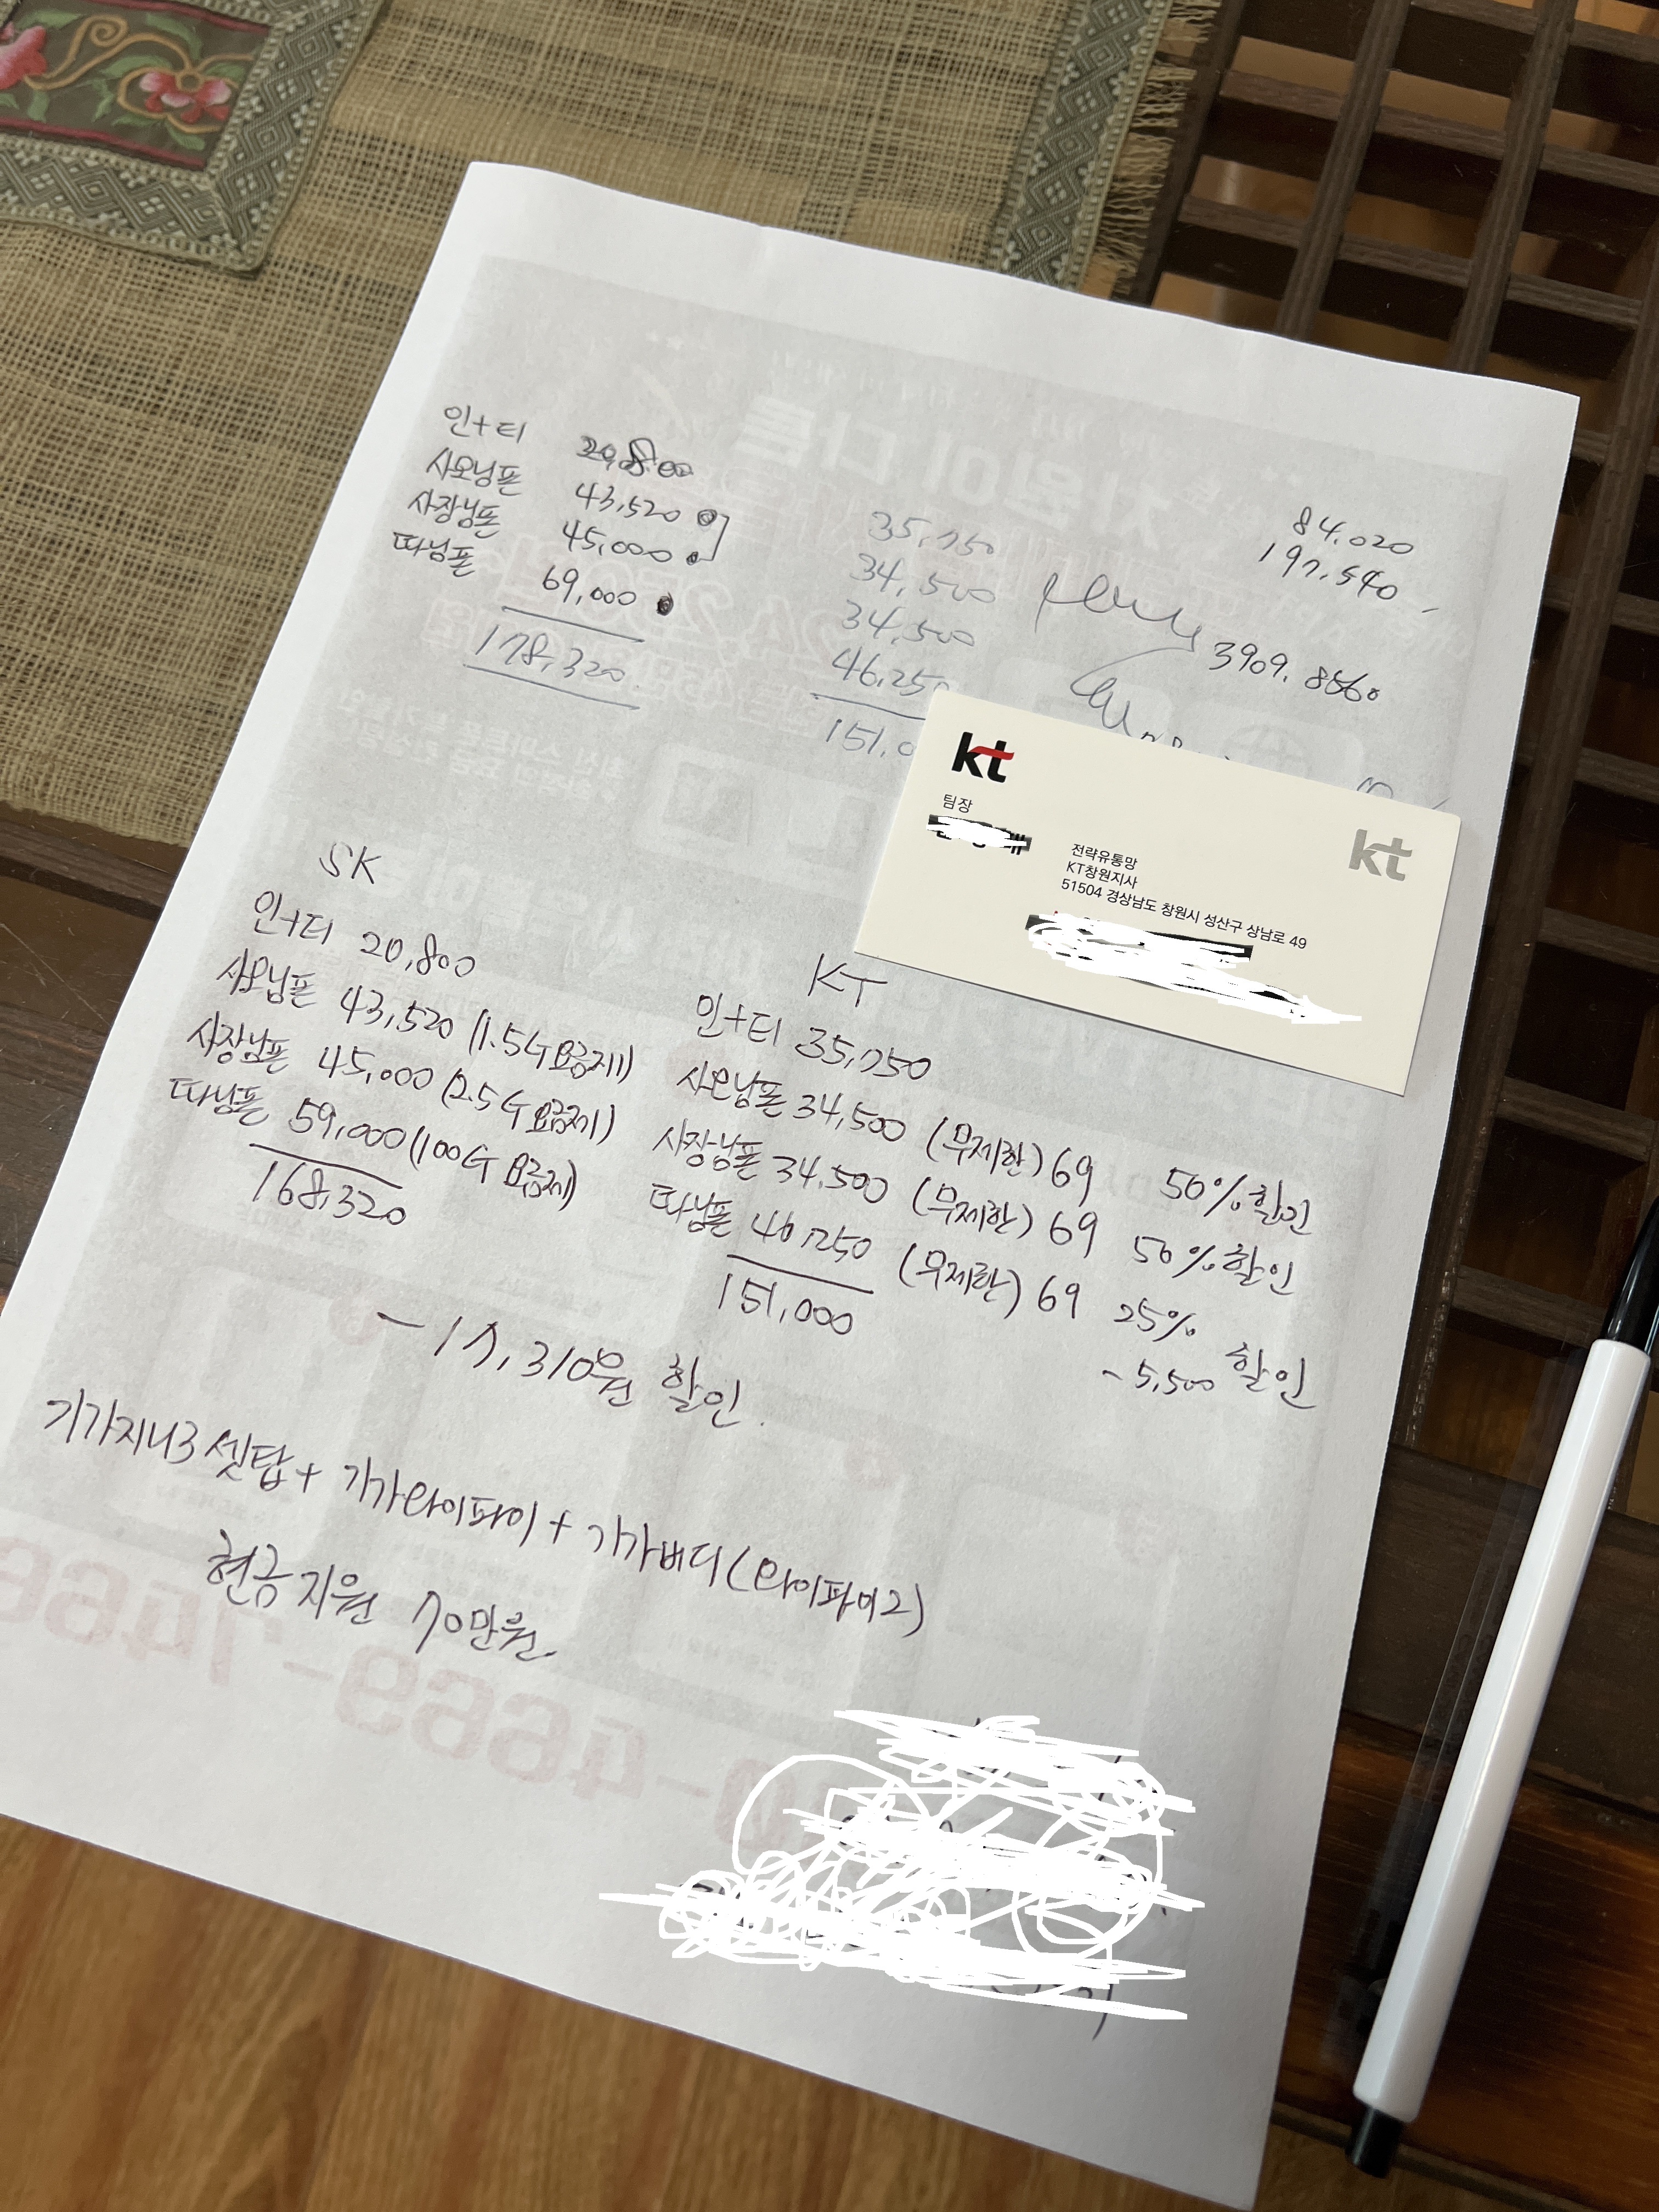 인+티 20,800
사모님폰 43,520
사장님폰 45,000
따님폰 69,000
178,320
35,750
34,500
34,500
46,250
151,0
84,020
197,540
3909. 8560
kt
팀장
전략유통망
KT창원지사
51504 경상남도 창원시 성산구 상남로 49
kt
SK
인+티 20,800
사모님폰 43,520 (1.5G요금제)
사장님폰 45,000 (2.5G 요금제)
따님폰 59,000 (100G 요금제)
168,320
KT
인+티 35,750
사모님폰 34,500 (무제한) 69 50% 할인
사장님폰 34,500 (무제한) 69 50% 할인
따님폰 46,250 (무제한) 69 25% 할인
-5,500
151,000
-17,310원 할인.
기가지니3 셋탑 + 기가와이파이 + 기가버디(와이파이2)
현금지원 70만원.